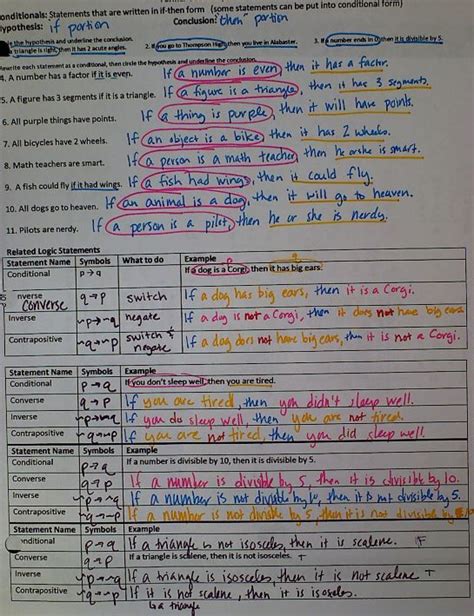 onditionals: Statements that are written in if-then form (some statements can be put into conditional form)
ypothesis: if portion Conclusion: "then" portion
the hypothesis and underline the conclusion.
triangle is right, then it has 2 acute angles. 2. If you go to Thompson High, then you live in Alabaster. 3. If a number ends in 0, then it is divisible by 5.
ewrite each statement as a conditional, then circle the hypothesis and underline the conclusion.
4. A number has a factor if it is even. If a number is even, then it has a factor.
5. A figure has 3 segments if it is a triangle. If a figure is a triangle, then it has 3 segments.
6. All purple things have points. If a thing is purple, then it will have points.
7. All bicycles have 2 wheels. If an object is a bike, then it has 2 wheels.
8. Math teachers are smart. If a person is a math teacher, then he or she is smart.
9. A fish could fly if it had wings. If a fish had wings, then it could fly.
10. All dogs go to heaven. If an animal is a dog, then it will go to heaven.
11. Pilots are nerdy. If a person is a pilot, then he or she is nerdy.
Related Logic Statements
Statement Name Symbols What to do Example
Conditional p→q If a dog is a Corgi, then it has big ears.
nverse
Converse q→p switch If a dog has big ears, then it is a Corgi.
Inverse ~p→~q negate If a dog is not a Corgi, then it does not have big ears
Contrapositive ~q→~p switch & negate If a dog does not have big ears, then it is not a Corgi.
Statement Name Symbols Example
Conditional p→q If you don't sleep well, then you are tired.
Converse q→p If you are tired, then you didn't sleep well.
Inverse ~p→~q If you do sleep well, then you are not tired.
Contrapositive ~q→~p If you are not tired, then you did sleep well.
Statement Name Symbols Example
Conditional p→q If a number is divisible by 10, then it is divisible by 5.
Converse q→p If a number is divisible by 5, then it is divisible by 10.
Inverse ~p→~q If a number is not divisible by 10, then it is not divisible by 5.
Contrapositive ~q→~p If a number is not divisible by 5, then it is not divisible by 10
Statement Name Symbols Example
onditional p→q If a triangle is not isosceles, then it is scalene. F
Converse q→p If a triangle is scalene, then it is not isosceles. T
Inverse ~p→~q If a triangle is isosceles, then it is not scalene T
Contrapositive ~q→~p If it is not scalene, then it is isosceles.
a triangle